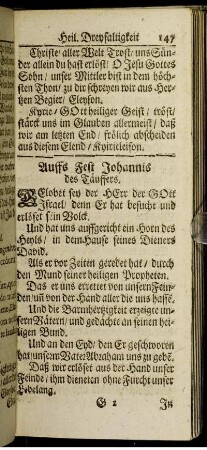 Heil. Dreyfaltigkeit 147
Christe/ aller Welt Trost/ uns Sün-
der allein du hast erlöst/ O Jesu Gottes
Sohn/ unser Mittler bist in dem höch-
sten Thon/ zu dir schreyen wir aus Her-
tzen Begier/ Eleyson.
Kyrie/ GOtt heiliger Geist/ tröst/
stärck uns im Glauben allermeist/ daß
wir am letzten End/ frölich abscheiden
aus diesem Elend/ Kyrieleison.
Auffs Fest Johannis
des Täuffers.
GElobet sey der HErr der GOtt
Israel/ denn Er hat besucht und
erlöset sein Volck.
Und hat uns auffgericht ein Horn des
Heyls/ in dem Hause seines Dieners
David.
Als er vor Zeiten geredet hat/ durch
den Mund seiner heiligen Propheten.
Das er uns errettet von unsern Fein-
den/ uñ von der Hand aller die uns hassẽ.
Und die Barmhertzigkeit erzeigte un-
sern Vätern/ und gedächt an seinen hei-
ligen Bund.
Und an den Eyd/ den Er geschworen
hat unserm Vater Abraham uns zu gebẽ.
Daß wir erlöset aus der Hand unser
Feinde/ ihm dieneten ohne Furcht unser
Lebelang.
G 2 In